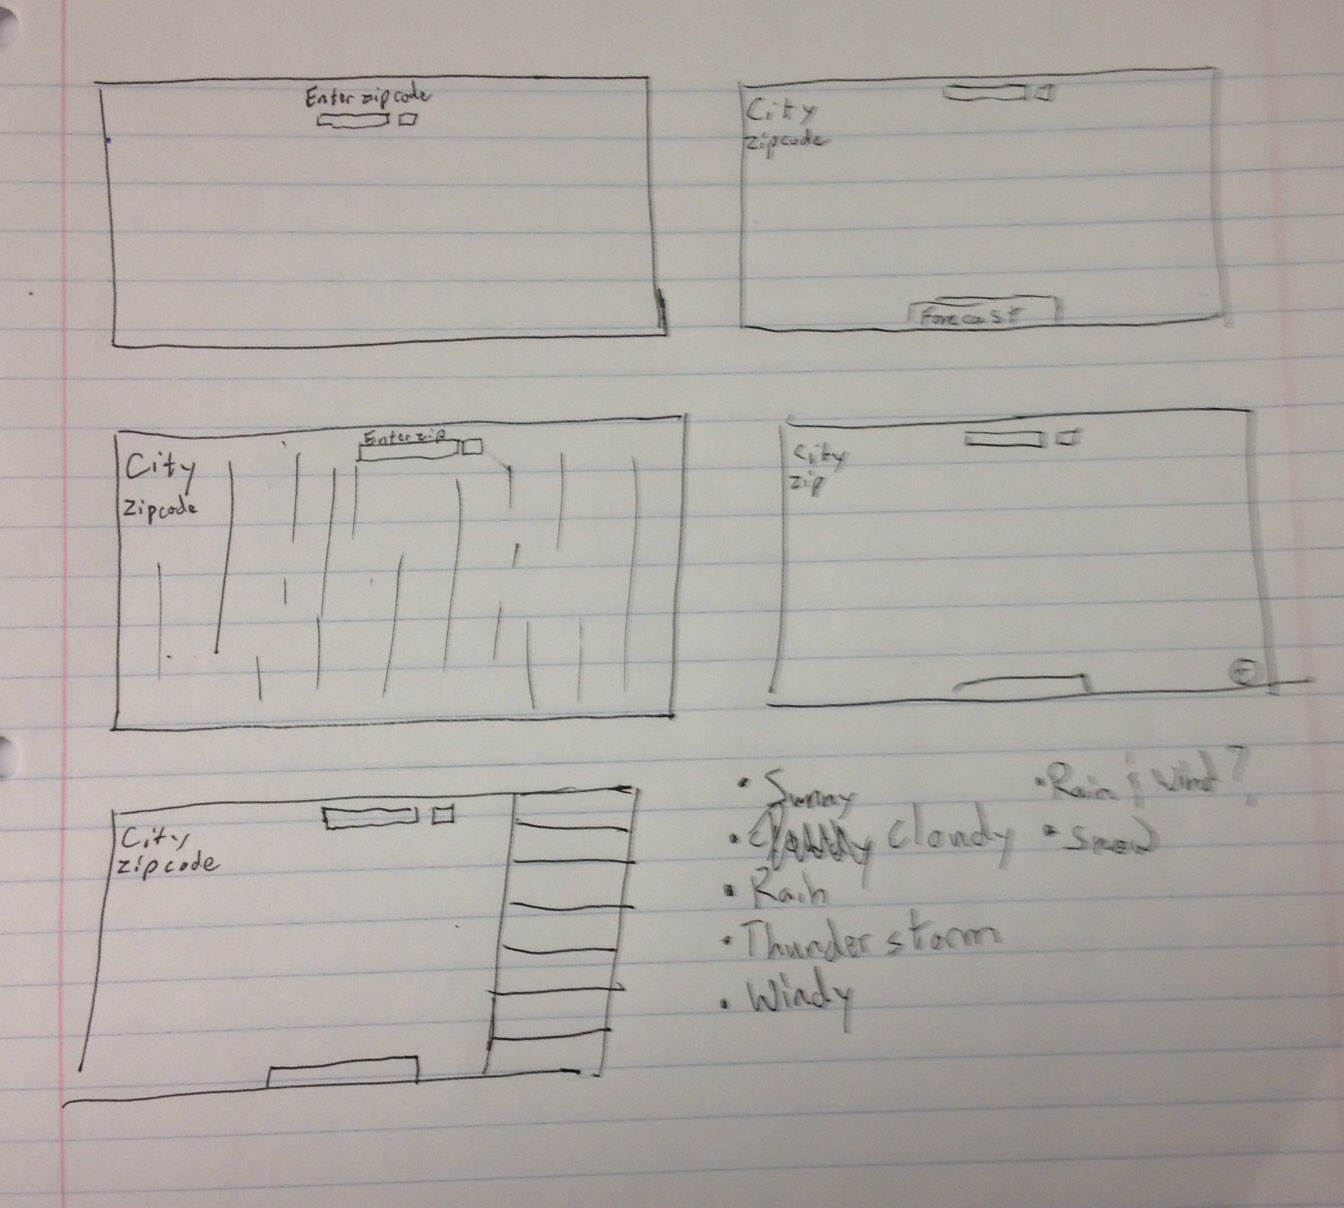 Enter zip code
City
zipcode
Forecast
Enter zip
City
Zipcode
City
zip
City
zipcode
• Sunny
• Cloudy
• Rain
• Thunder storm
• Windy
• Rain & Wind?
• Snow